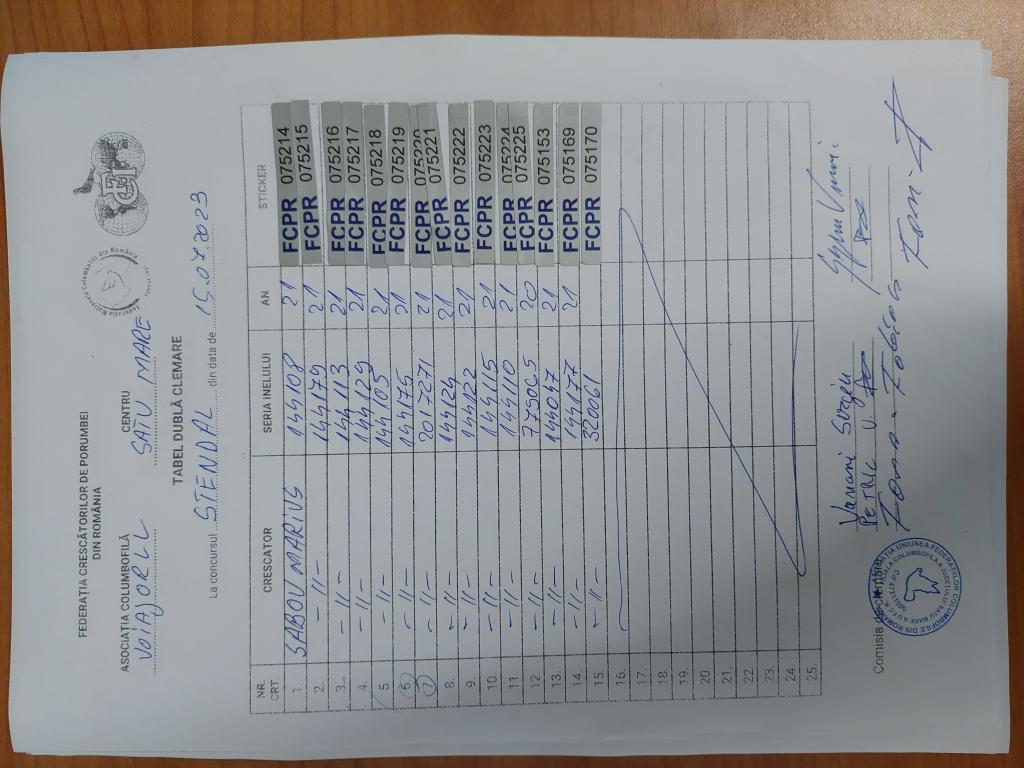 FEDERAȚIA CRESCĂTORILOR DE PORUMBEI
DIN ROMÂNIA
ASOCIAȚIA COLUMBOFILĂ CENTRU
VOIAJORLL SATU MARE
TABEL DUBLĂ CLEMARE
La concursul STENDAL din data de 15.07.2023
NR. CRT. CRESCATOR SERIA INELULUI AN STICKER
1. SABOU MARIUS 144108 21 FCPR 075214
2. -11- 144179 21 FCPR 075215
3. -11- 144113 21 FCPR 075216
4. -11- 144129 21 FCPR 075217
5 -11- 144105 21 FCPR 075218
6 -11- 144175 21 FCPR 075219
7 -11- 2017271 21 FCPR 075220
8. -11- 144124 21 FCPR 075221
9. -11- 144122 21 FCPR 075222
10. -11- 144115 21 FCPR 075223
11 -11- 144110 21 FCPR 075224
12. -11- 775005 20 FCPR 075225
13. -11- 144047 21 FCPR 075153
14. -11- 144177 21 FCPR 075169
15. -11- 320061 FCPR 075170
16.
17.
18.
19.
20.
21.
22.
23.
24.
25.
Comisia de clemare
PETRIC V.